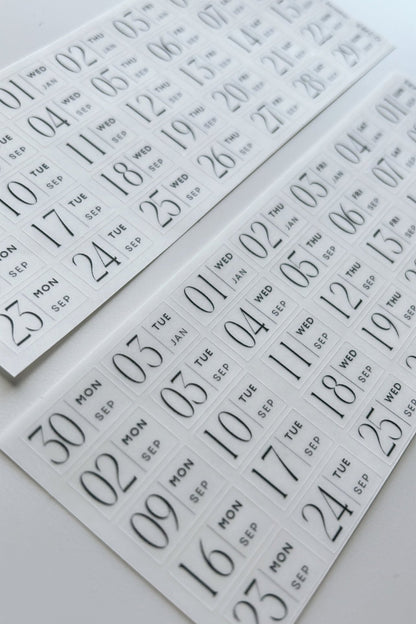 01 WED JAN
02 THU JAN
03 FRI
TUE SEP
04 WED SEP
05 THU SEP
06 FRI SEP
10 TUE SEP
11 WED SEP
12 THU SEP
13 FRI SEP
14
MON SEP
17 TUE SEP
18 WED SEP
19 THU SEP
20 FRI SEP
21 SAT
23 MON SEP
24 TUE SEP
25 WED SEP
26 THU SEP
27 FRI SEP
28 SAT SEP
29
30 MON SEP
03 TUE JAN
01 WED JAN
02 THU JAN
03 FRI JAN
04 SAT JAN
01
02 MON SEP
03 TUE SEP
04 WED SEP
05 THU SEP
06 FRI SEP
07 SAT
09 MON SEP
10 TUE SEP
11 WED SEP
12 THU SEP
13 FRI SEP
16 MON SEP
17 TUE SEP
18 WED SEP
19 THU SEP
23 MON SEP
24 TUE SEP
25 WED